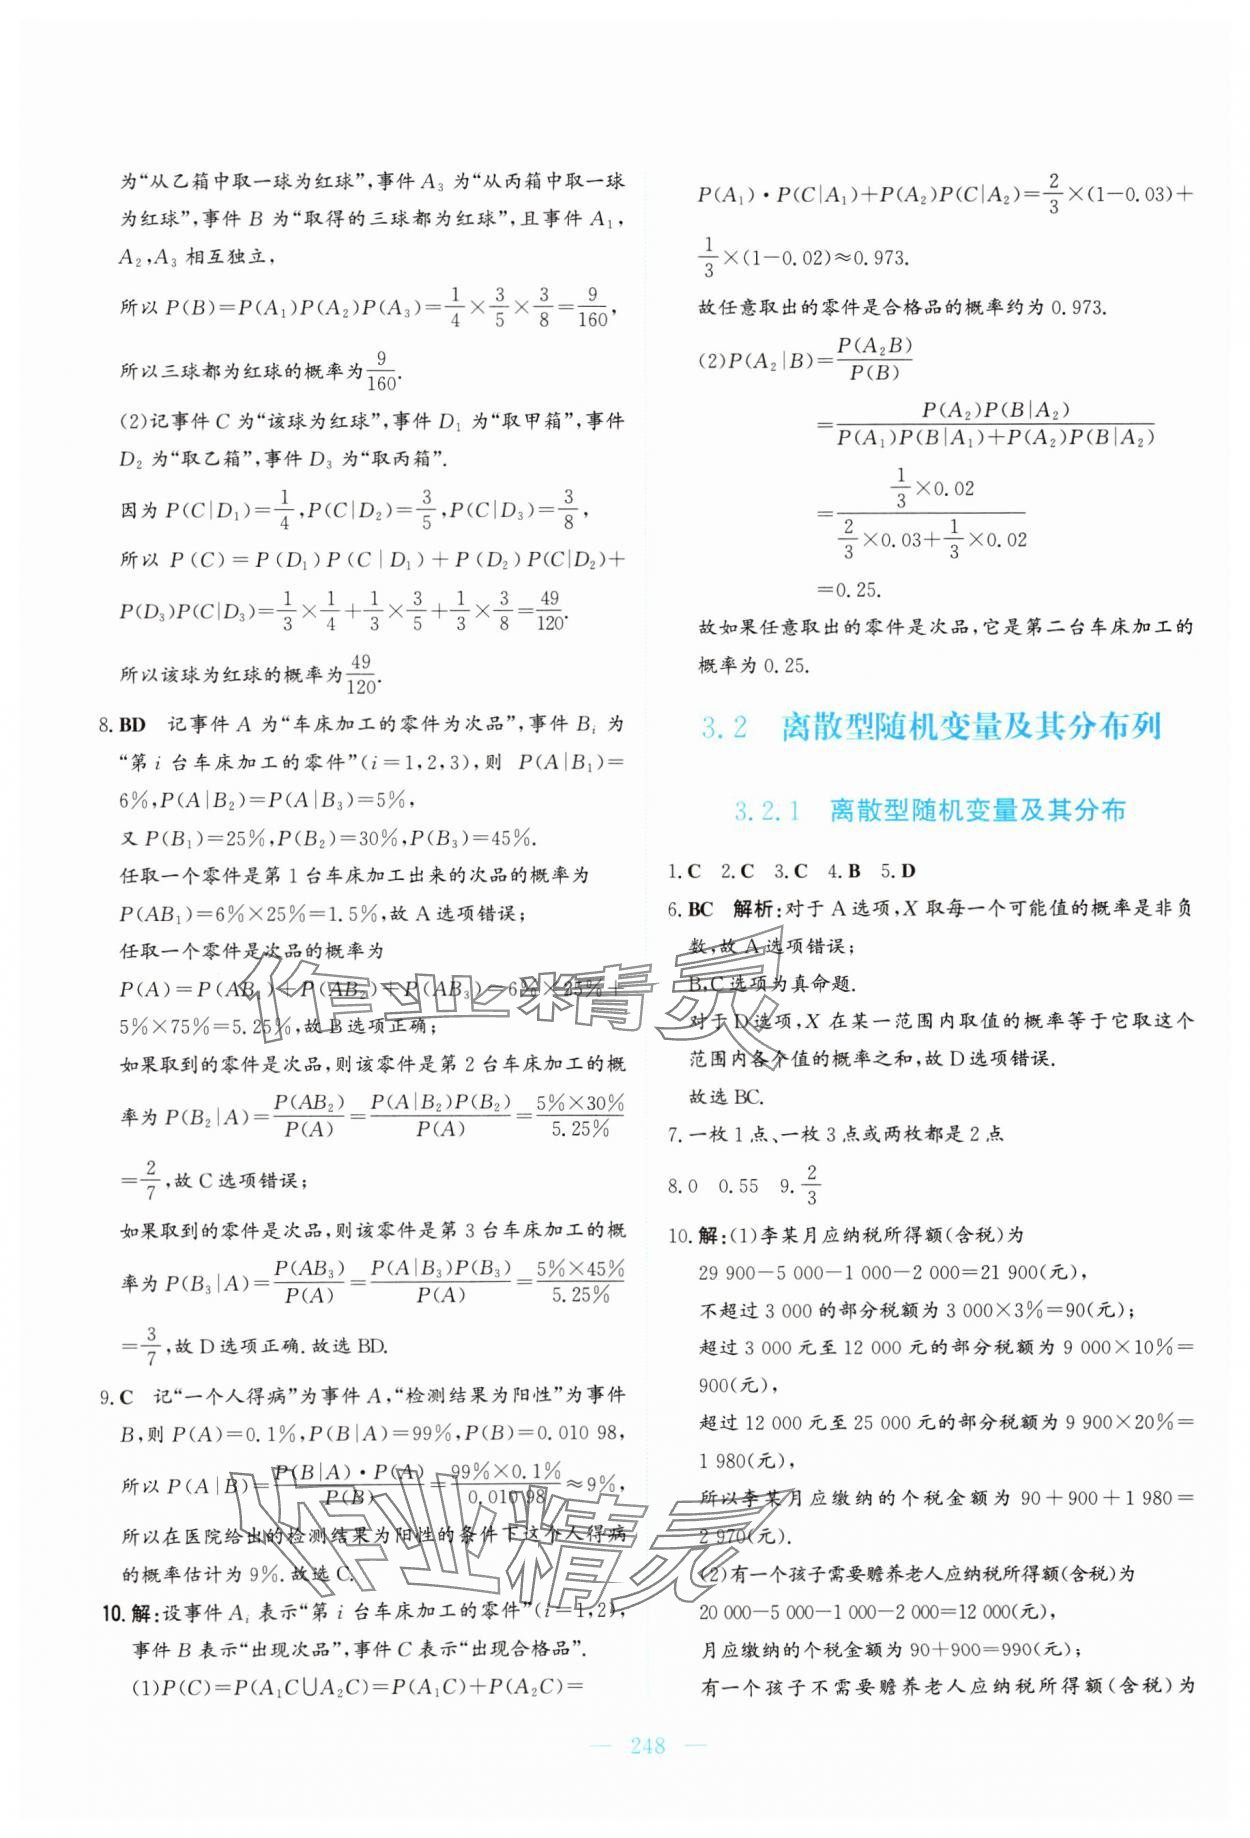 为“从乙箱中取一球为红球”,事件 A₃ 为“从丙箱中取一球
为红球”,事件 B 为“取得的三球都为红球”,且事件 A₁,
A₂,A₃ 相互独立,
所以 P(B)=P(A₁)P(A₂)P(A₃)=1/4×3/5×3/8=9/160,
所以三球都为红球的概率为9/160.
(2)记事件 C 为“该球为红球”,事件 D₁ 为“取甲箱”,事件
D₂ 为“取乙箱”,事件 D₃ 为“取丙箱”.
因为 P(C|D₁)=1/4,P(C|D₂)=3/5,P(C|D₃)=3/8,
所以 P(C)=P(D₁)P(C|D₁)+P(D₂)P(C|D₂)+
P(D₃)P(C|D₃)=1/3×1/4+1/3×3/5+1/3×3/8=49/120.
所以该球为红球的概率为49/120.
8. BD 记事件 A 为“车床加工的零件为次品”,事件 Bᵢ 为
“第 i 台车床加工的零件”(i=1,2,3),则 P(A|B₁)=
6%,P(A|B₂)=P(A|B₃)=5%,
又 P(B₁)=25%,P(B₂)=30%,P(B₃)=45%.
任取一个零件是第 1 台车床加工出来的次品的概率为
P(AB₁)=6%×25%=1.5%,故 A 选项错误;
任取一个零件是次品的概率为
P(A)=P(AB₁)+P(AB₂)+P(AB₃)=6%×25%+
5%×75%=5.25%,故 B 选项正确;
如果取到的零件是次品,则该零件是第 2 台车床加工的概
率为 P(B₂|A)=P(AB₂)/P(A)=P(A|B₂)P(B₂)/P(A)=5%×30%/5.25%
=2/7,故 C 选项错误;
如果取到的零件是次品,则该零件是第 3 台车床加工的概
率为 P(B₃|A)=P(AB₃)/P(A)=P(A|B₃)P(B₃)/P(A)=5%×45%/5.25%
=3/7,故 D 选项正确.故选 BD.
9. C 记“一个人得病”为事件 A,“检测结果为阳性”为事件
B,则 P(A)=0.1%,P(B|A)=99%,P(B)=0.010 98,
所以 P(A|B)=P(B|A)·P(A)/P(B)=99%×0.1%/0.010 98≈9%,
所以在医院给出的检测结果为阳性的条件下这个人得病
的概率估计为 9%.故选 C.
10. 解:设事件 Aᵢ 表示“第 i 台车床加工的零件”(i=1,2),
事件 B 表示“出现次品”,事件 C 表示“出现合格品”.
(1)P(C)=P(A₁C∪A₂C)=P(A₁C)+P(A₂C)=
P(A₁)·P(C|A₁)+P(A₂)P(C|A₂)=2/3×(1-0.03)+
1/3×(1-0.02)≈0.973.
故任意取出的零件是合格品的概率约为 0.973.
(2)P(A₂|B)=P(A₂B)/P(B)
=P(A₂)P(B|A₂)/(P(A₁)P(B|A₁)+P(A₂)P(B|A₂))
=(1/3×0.02)/(2/3×0.03+1/3×0.02)
=0.25.
故如果任意取出的零件是次品,它是第二台车床加工的
概率为 0.25.
3.2 离散型随机变量及其分布列
3.2.1 离散型随机变量及其分布
1. C 2. C 3. C 4. B 5. D
6. BC 解析:对于 A 选项,X 取每一个可能值的概率是非负
数,故 A 选项错误;
B,C 选项为真命题.
对于 D 选项,X 在某一范围内取值的概率等于它取这个
范围内各个值的概率之和,故 D 选项错误.
故选 BC.
7. 一枚 1 点、一枚 3 点或两枚都是 2 点
8. 0 0.55 9. 2/3
10. 解:(1)李某月应纳税所得额(含税)为
29 900-5 000-1 000-2 000=21 900(元),
不超过 3 000 的部分税额为 3 000×3%=90(元);
超过 3 000 元至 12 000 元的部分税额为 9 000×10%=
900(元),
超过 12 000 元至 25 000 元的部分税额为 9 900×20%=
1 980(元),
所以李某月应缴纳的个税金额为 90+900+1 980=
2 970(元).
(2)有一个孩子需要赡养老人应纳税所得额(含税)为
20 000-5 000-1 000-2 000=12 000(元),
月应缴纳的个税金额为 90+900=990(元);
有一个孩子不需要赡养老人应纳税所得额(含税)为
— 248 —
作业精灵
作业精灵